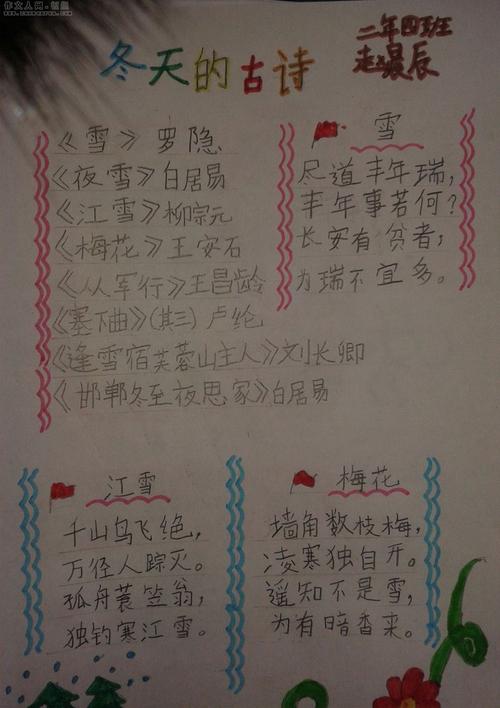 作文人网·创星
二年四班
赵晨辰
冬天的古诗
《雪》罗隐
《夜雪》白居易
《江雪》柳宗元
《梅花》王安石
《从军行》王昌龄
《塞下曲》(其三)卢纶
《逢雪宿芙蓉山主人》刘长卿
《邯郸冬至夜思家》白居易
雪
尽道丰年瑞，
丰年事若何？
长安有贫者，
为瑞不宜多。
江雪
千山鸟飞绝，
万径人踪灭。
孤舟蓑笠翁，
独钓寒江雪。
梅花
墙角数枝梅，
凌寒独自开。
遥知不是雪，
为有暗香来。